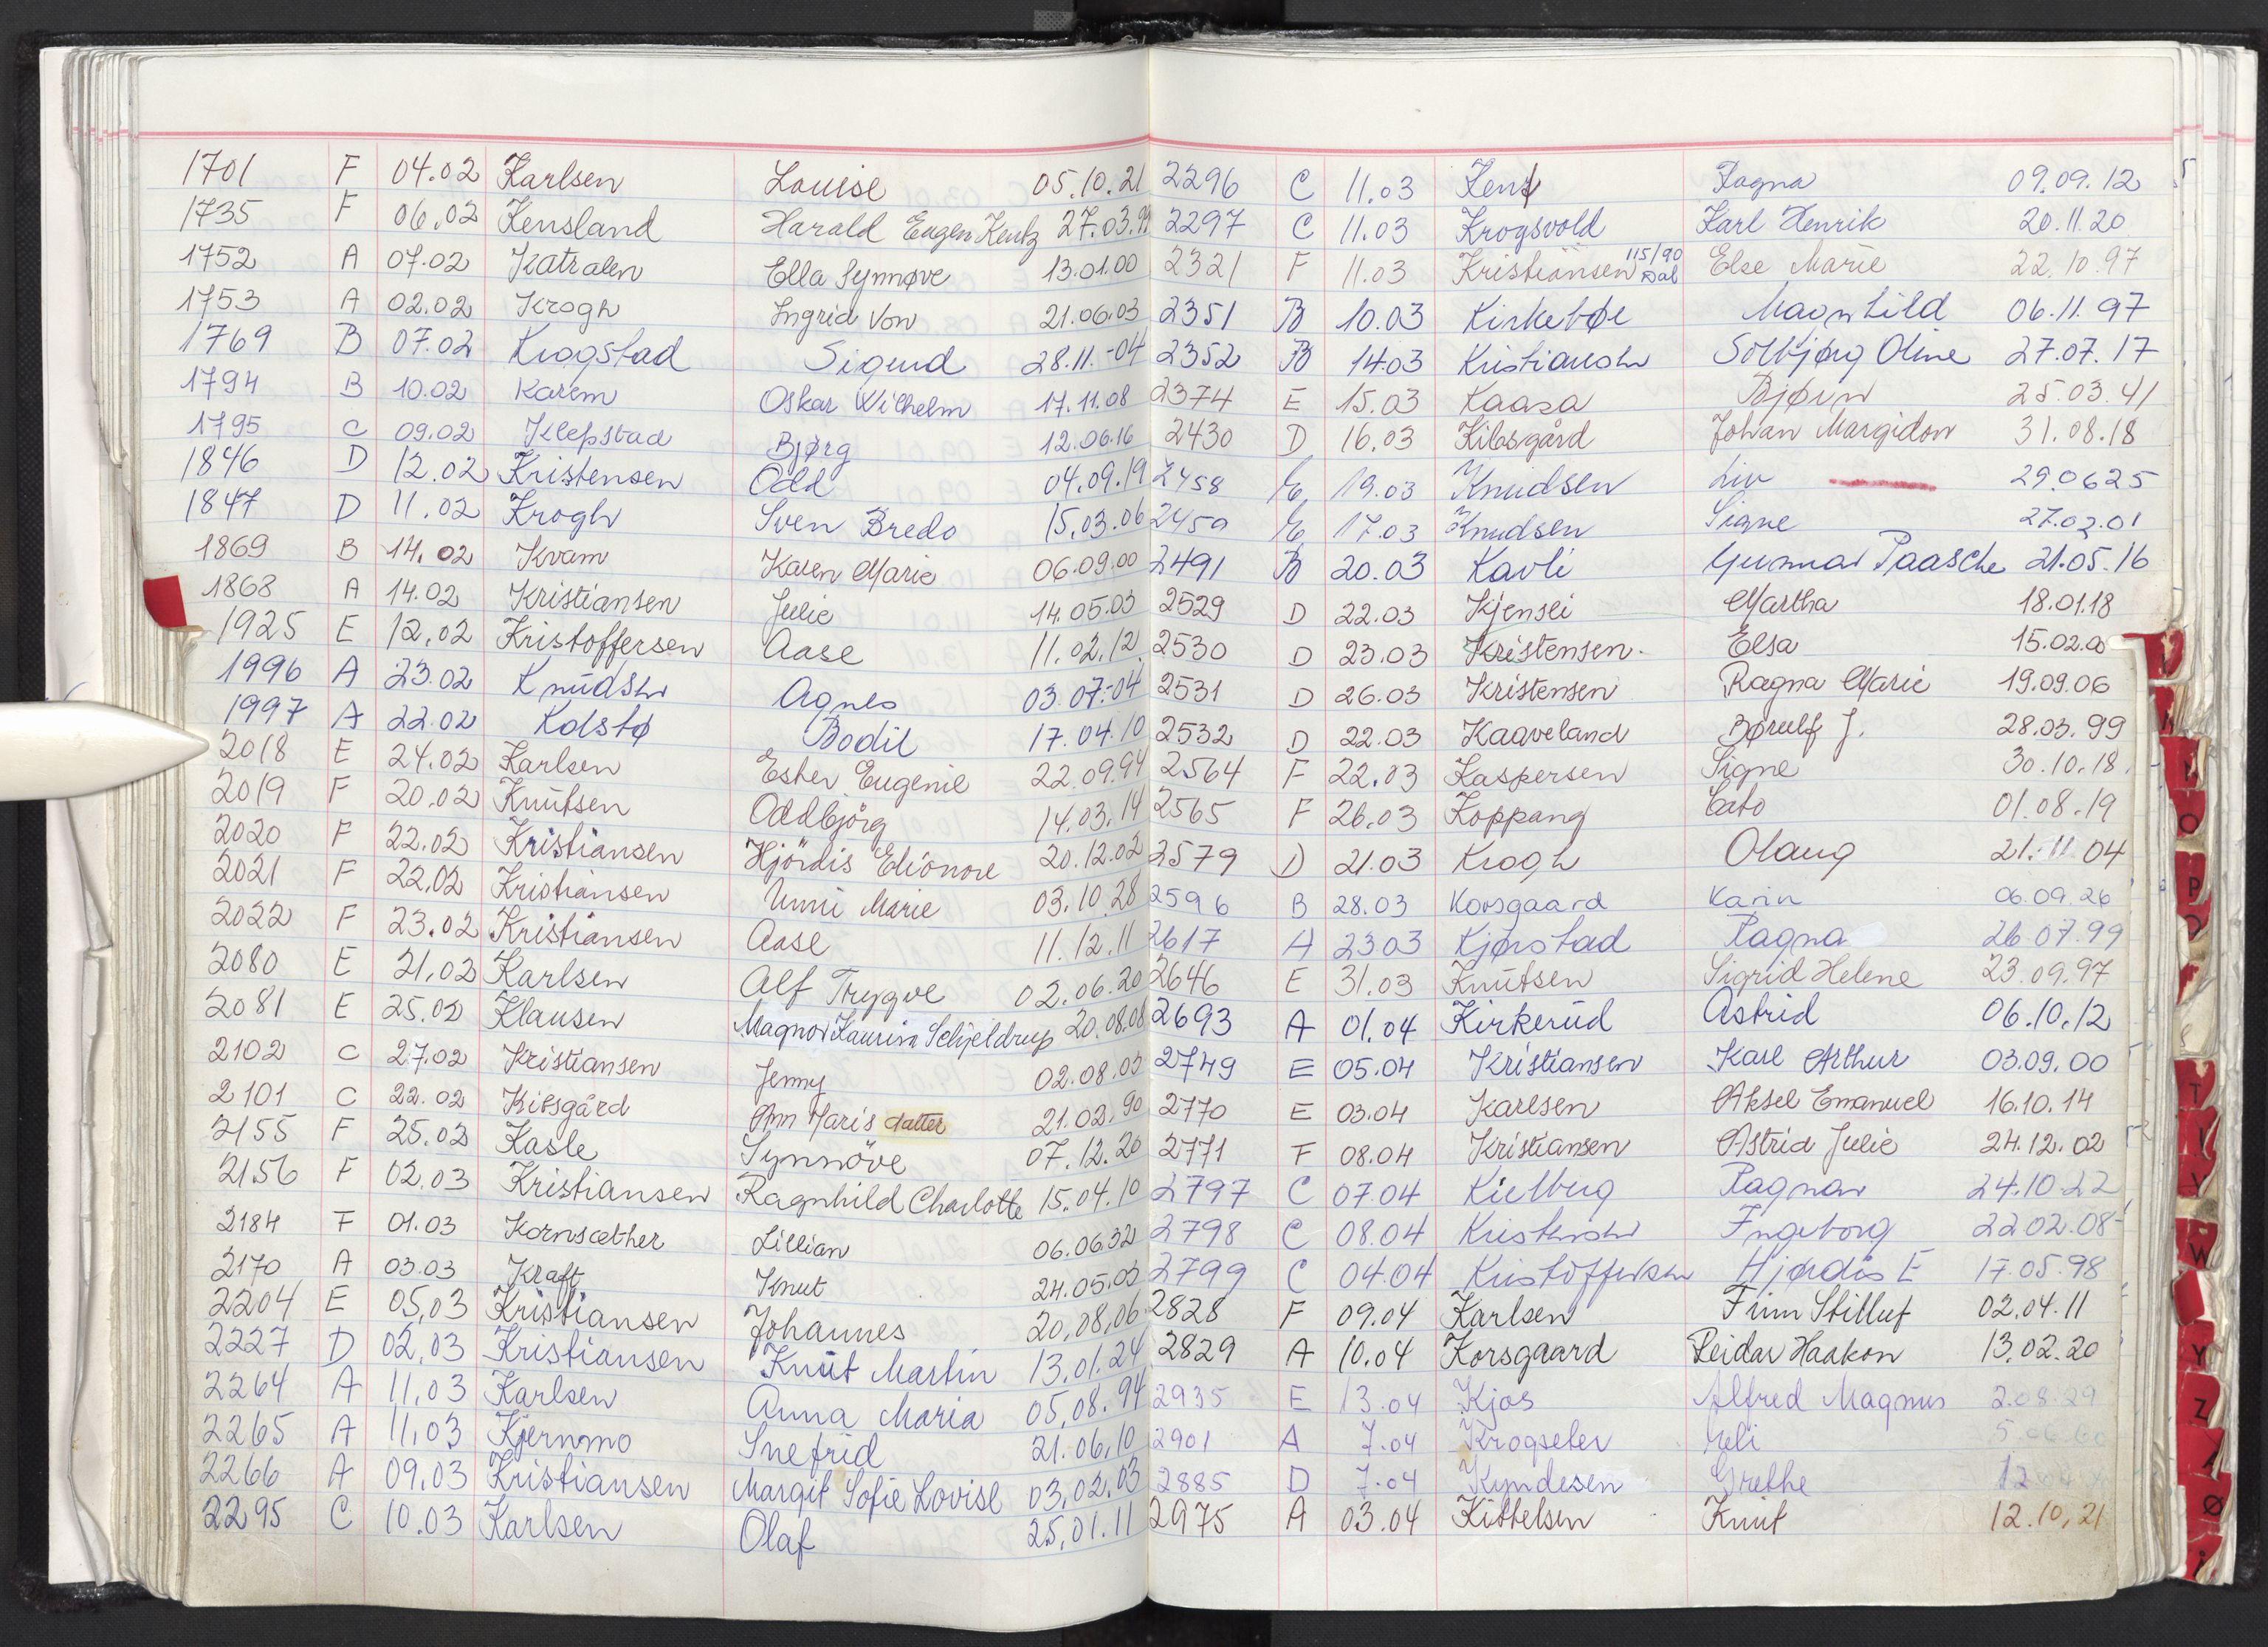 1701 F 04.02 Karlsen Louise 05.10.21
1735 F 06.02 Kensland Harald Eugen Kentz 27.03.99
1752 A 07.02 Katralen Ella Synnøve 13.01.00
1753 A 02.02 Krogh Ingrid Von 21.06.03
1769 B 07.02 Krogstad Sigurd 28.11.-04
1794 B 10.02 Karem Oskar Wilhelm 17.11.08
1795 C 09.02 Klepstad Bjørg 12.06.16
1846 D 12.02 Kristensen Odd 04.09.19
1847 D 11.02 Krogh Sven Bredo 15.03.06
1869 B 14.02 Kvam Karen Marie 06.09.00
1868 A 14.02 Kristiansen Julie 14.05.03
1925 E 12.02 Kristoffersen Aase 11.02.12
1996 A 23.02 Knudsen Agnes 03.07-04
1997 A 22.02 Kolstø Bodil 17.04.10
2018 E 24.02 Karlsen Ester Eugenie 22.09.94
2019 F 20.02 Knutsen Oddbjörg 14.03.14
2020 F 22.02 Kristiansen Hjördis Eleonore 20.12.02
2021 F 22.02 Kristiansen Unni Marie 03.10.28
2022 F 23.02 Kristiansen Aase 11.12.11
2080 E 21.02 Karlsen Alf Trygve 02.06.20
2081 E 25.02 Klausen Magnor Laurim Schjeldrup 20.08.08
2102 C 27.02 Kristiansen Jenny 02.08.03
2101 C 22.02 Kibsgård Ann Maris datter 21.02.90
2155 F 25.02 Kasle Synnöve 07.12.20
2156 F 02.03 Kristiansen Ragnhild Charlotte 15.04.10
2184 F 01.03 Kornsæther Lillian 06.06.32
2170 A 03.03 Kraft Knut 24.05.03
2204 E 05.03 Kristiansen Johannes 20.08.06
2227 D 02.03 Kristiansen Knut Martin 13.01.24
2264 A 11.03 Karlsen Anna Maria 05.08.94
2265 A 11.03 Kjernmo Snefrid 21.06.10
2266 A 09.03 Kristiansen Margit Sofie Lovise 03.02.03
2295 C 10.03 Karlsen Olaf 25.01.11
2296 C 11.03 Ragna 09.09.12
2297 C 11.03 Krogsvold Karl Henrik 20.11.20
2321 F 11.03 Kristiansen 115/90 Dal Else Marie 22.10.97
2351 B 10.03 Kirkebøe Magnhild 06.11.97
2352 B 14.03 Kristiansen Solbjørg Oline 27.07.17
2374 E 15.03 Kaasa Bjørn 25.03.41
2430 D 16.03 Kibsgård Johan Margidon 31.08.18
2458 E 19.03 Knudsen Liv 29.0625
2459 E 17.03 Knudsen Signe 27.02.01
2491 B 20.03 Kavli Gunnar Paasche 21.05.16
2529 D 22.03 Kjensli Martha 18.01.18
2530 D 23.03 Kristensen. Elsa 15.02.0
2531 D 26.03 Kristensen Ragna Marie 19.09.06
2532 D 22.03 Kaaveland Børulf J. 28.03.99
2564 F 22.03 Kaspersen Signe 30.10.18.
2565 F 26.03 Koppang Cato 01.08.19
2579 D 21.03 Krogh Olaug 21.11 04
2596 B 28.03 Korsgaard Karin 06.09.26
2617 A 2303 Kjørstad Ragna 26.07.99
2646 E 31.03 Knutsen Sigrid Helene 23.09.97
2693 A 01.04 Kirkerud Astrid 06.10.12
2749 E 05.04 Kristiansen Karl Arthur 03.09.00
2770 E 03.04 Karlsen Aksel Emanuel 16.10.14
2771 F 08.04 Kristiansen Astrid Julie 24.12.02
2797 C 07.04 Kielberg Ragnar 24.10.22
2798 C 08.04 Kristensen Ingeborg 22.02.08
2799 C 04.04 Kristoffersen Hjørdis E 17.05.98
2828 F 09.04 Karlsen Finn 02.04.11
2829 A 10.04 Korsgaard Reidar Haakon 13.02.20
2935 E 13.04 Kjos Alfred Magnus 2.08.29
2901 A 7.04 Krogseter Eli
2885 D 7.04 Kyndesen Grethe 12
2975 A 03.04 Kittelsen Knut 12.10.21
O
P
T
V
W
Y
Z
Ø